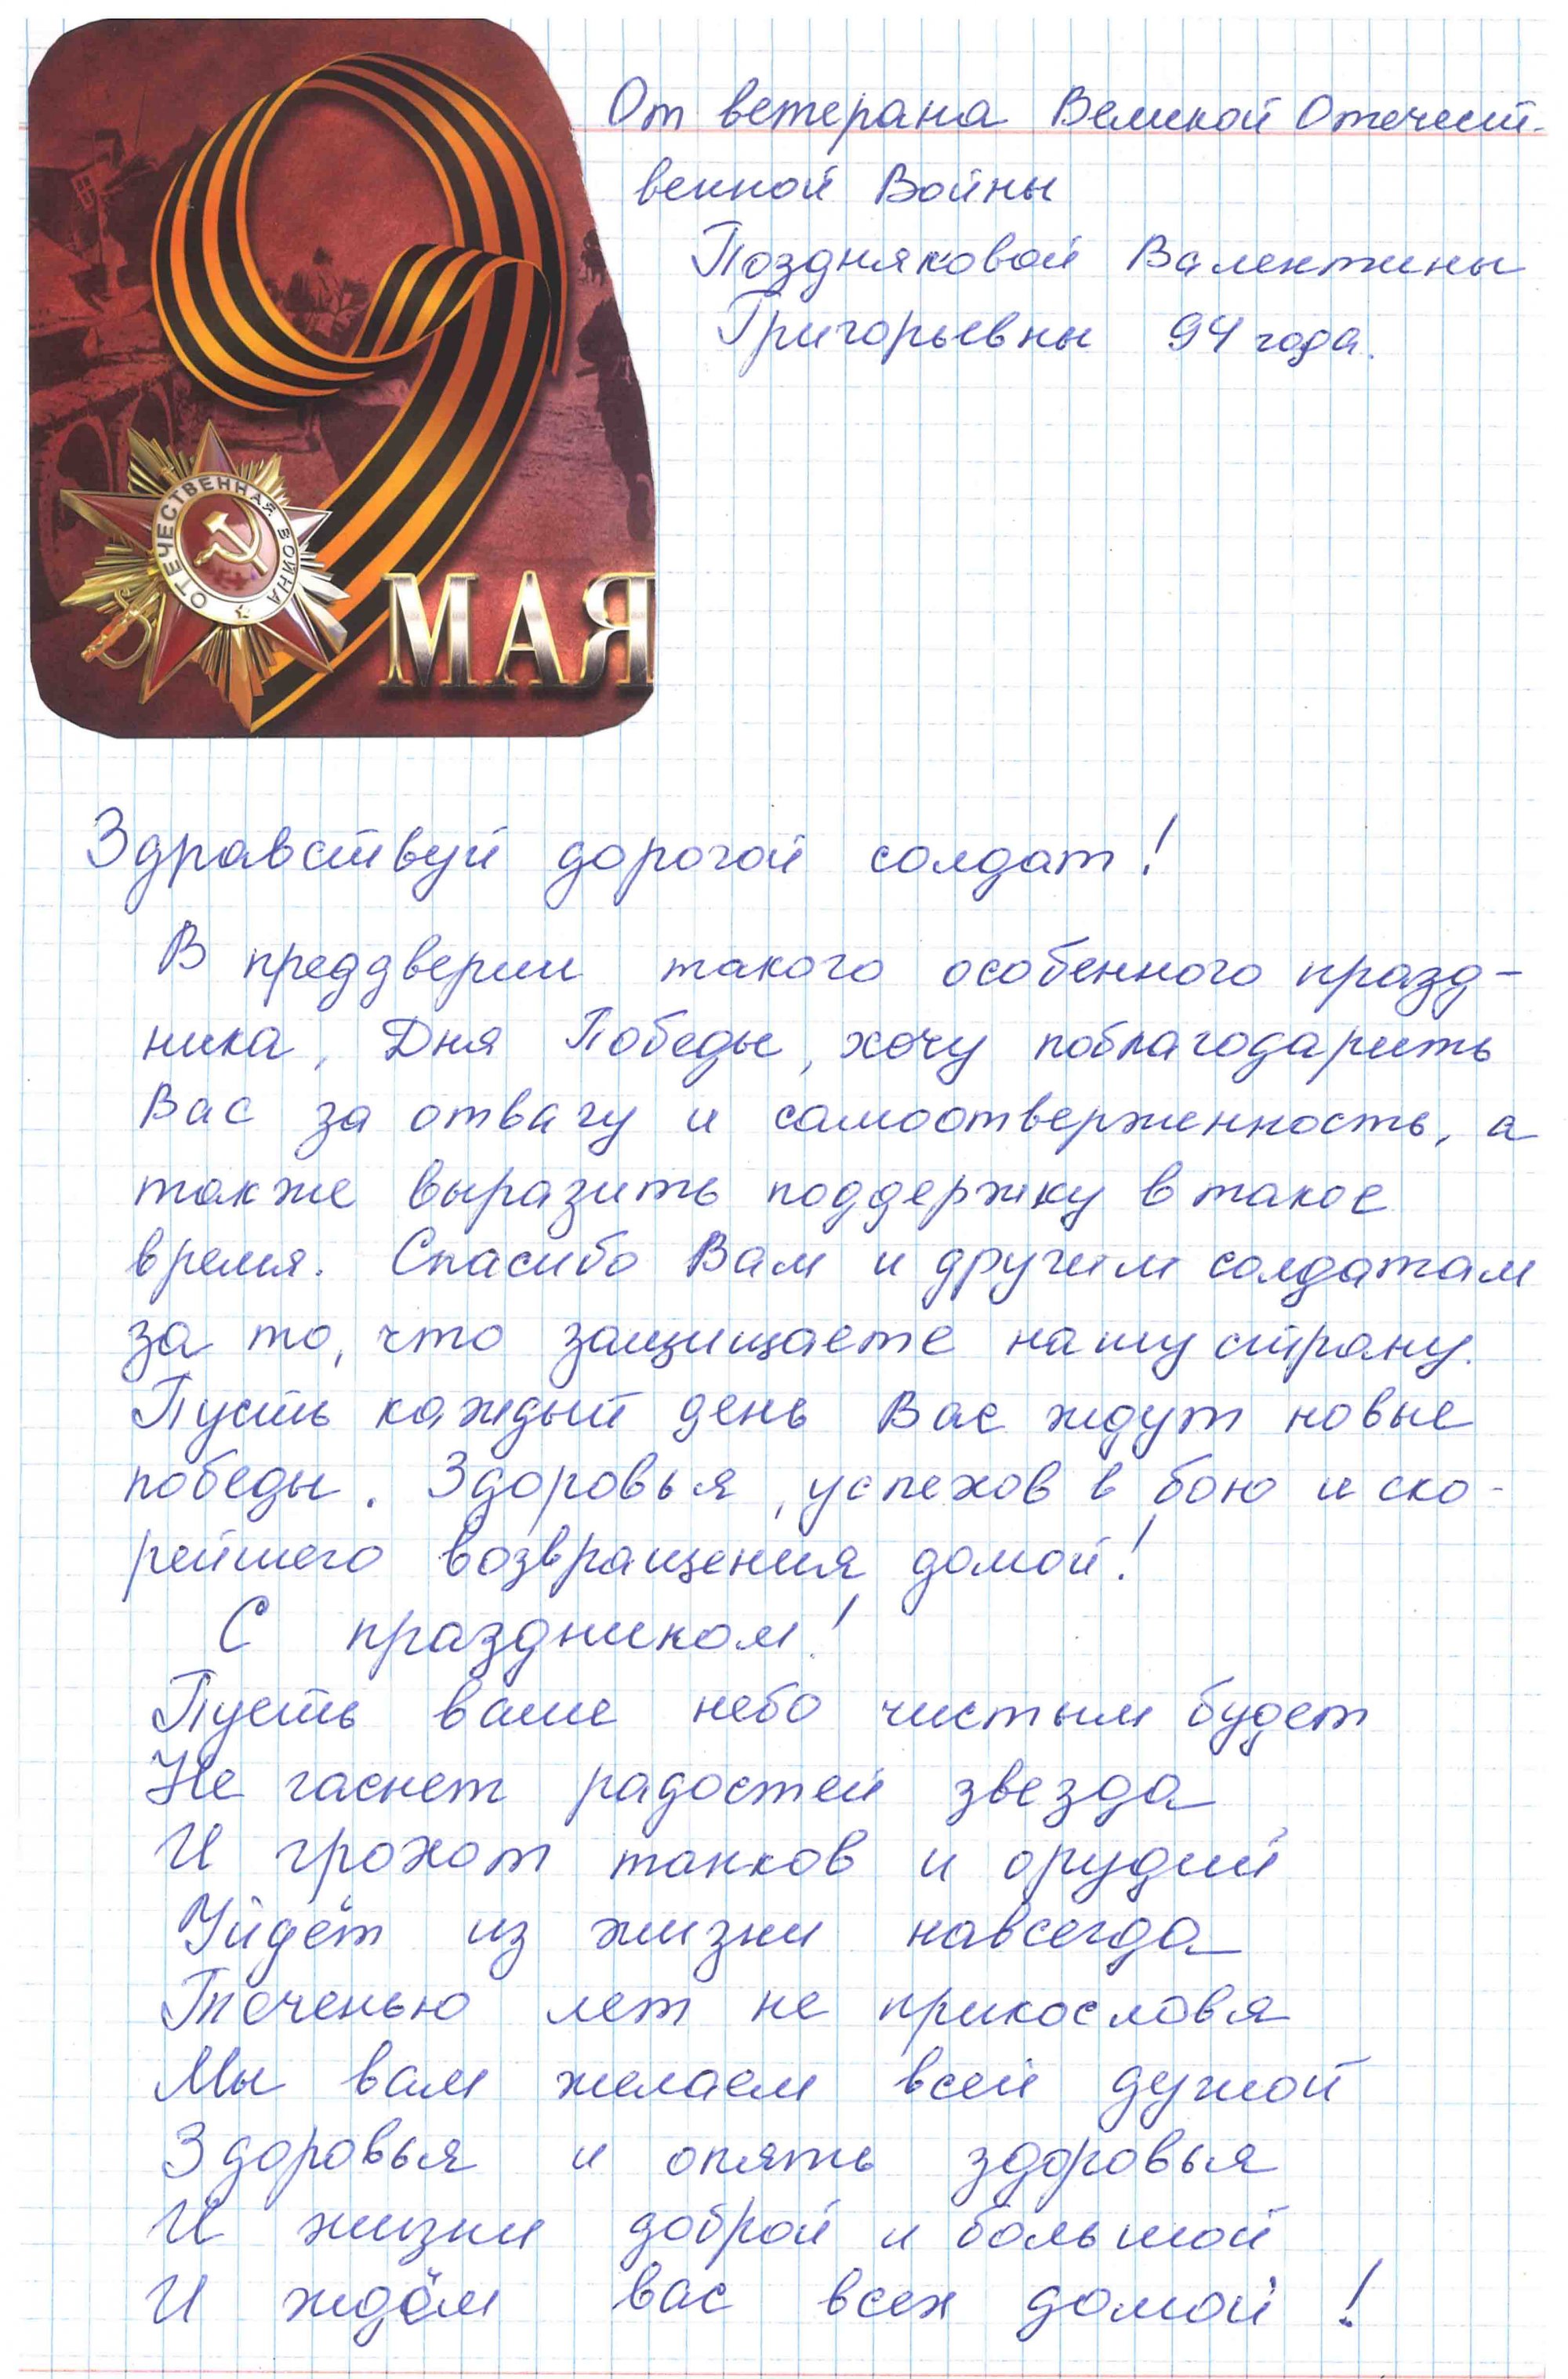 От ветерана Великой Отечест-
венной Войны
Поздняковой Валентины
Григорьевны 94 года.
ОТЕЧЕСТВЕННАЯ ВОЙНА
9 МАЯ
Здравствуй дорогой солдат!
В преддверии такого особенного празд-
ника, Дня Победы, хочу поблагодарить
Вас за отвагу и самоотверженность, а
также выразить поддержку в такое
время. Спасибо Вам и другим солдатам
за то, что защищаете нашу страну.
Пусть каждый день Вас ждут новые
победы. Здоровья, успехов в бою и ско-
рейшего возвращения домой!
С праздником!
Пусть ваше небо чистым будет
Не гаснет радостей звезда
И грохот танков и орудий
Уйдёт из жизни навсегда
Теченью лет не прикословя
Мы вам желаем всей душой
Здоровья и опять здоровья
И жизни доброй и большой
И ждём вас всех домой!